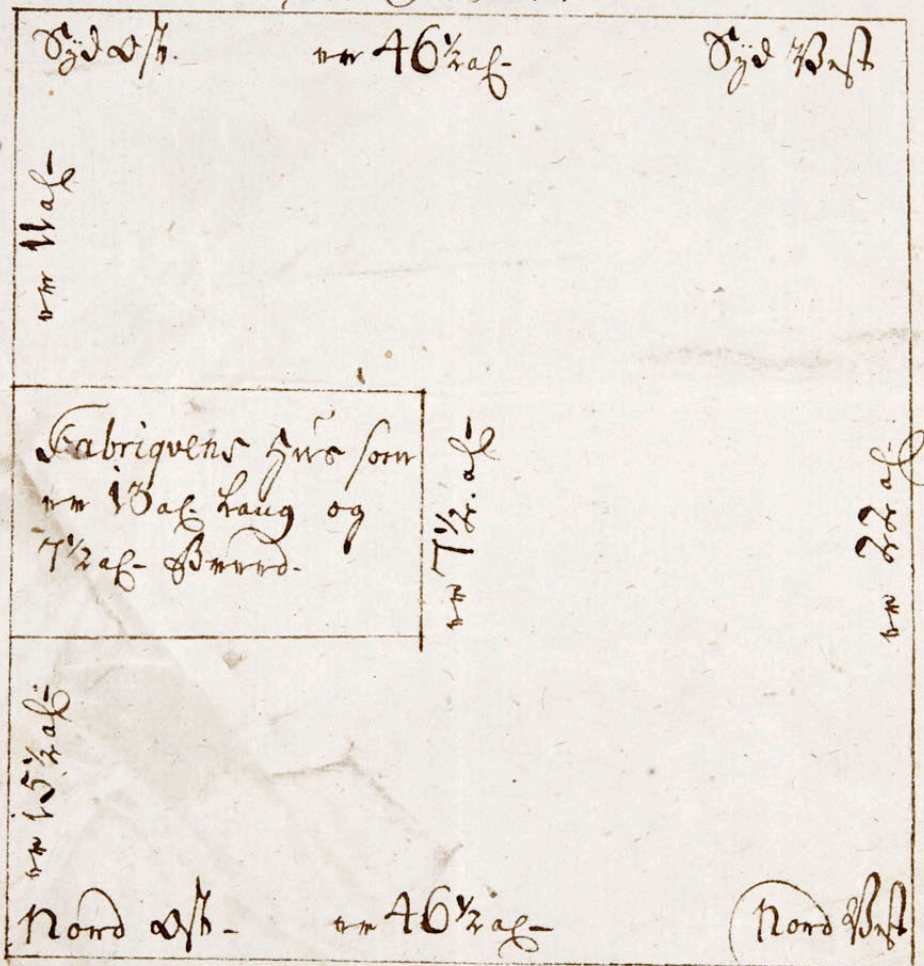 Syd Øst.
er 46 1/2 al-
Syd Vest
er 11 al-
Fabriqvens Hus som
er 13 al. Lang og
7 1/2 al- Breed.
er 7 1/2. al-
er 22 al-
er 15 1/2 al-
Nord Øst-
er 46 1/2 al-
Nord Vest